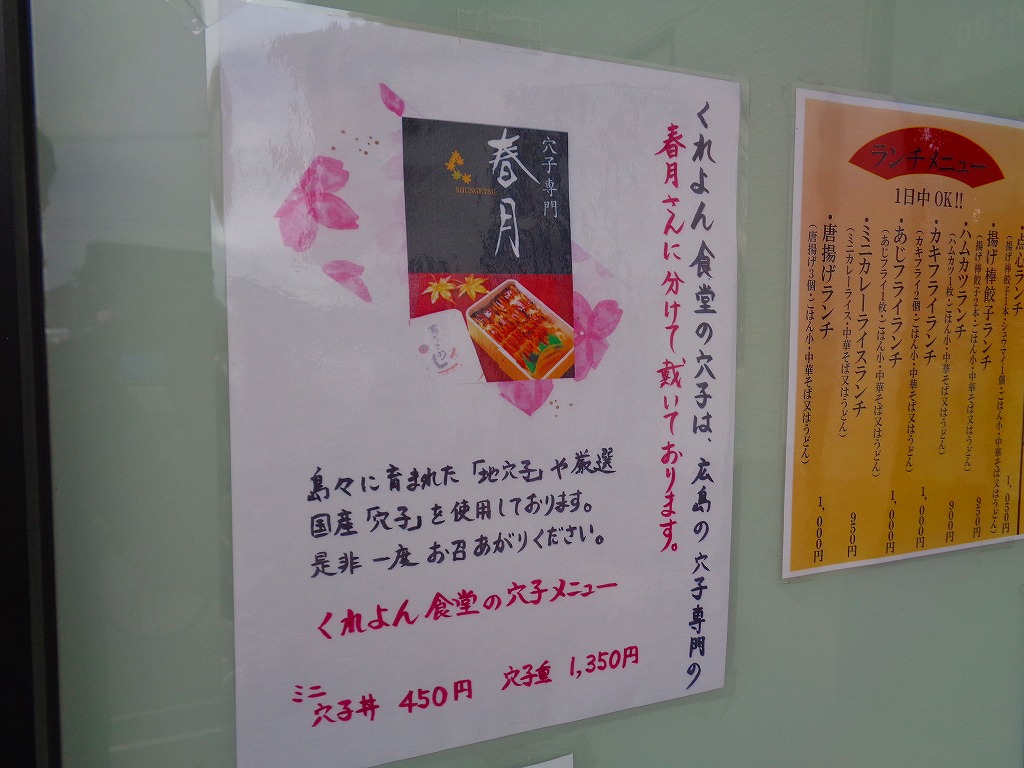 くれよん食堂の穴子は、広島の穴子専門の
春月さんに分けて戴いております。
穴子専門
春月
SHUNGETSU
島々に育まれた「地穴子」や厳選
国産「穴子」を使用しております。
是非一度お召あがりください。
くれよん食堂の穴子メニュー
ミニ穴子丼 450円 穴子重 1,350円
ランチメニュー
1日中OK!!
1,050円
・揚げ棒餃子ランチ 950円
(揚げ棒餃子2本・ごはん小・中華そば又はうどん)
・ハムカツランチ 900円
(ハムカツ1枚・ごはん小・中華そば又はうどん)
・カキフライランチ 1,000円
(カキフライ2個・ごはん小・中華そば又はうどん)
・あじフライランチ 1,000円
(あじフライ1枚・ごはん小・中華そば又はうどん)
・ミニカレーライスランチ 950円
(ミニカレーライス・中華そば又はうどん)
・唐揚げランチ 1,000円
(唐揚げ3個・ごはん小・中華そば又はうどん)